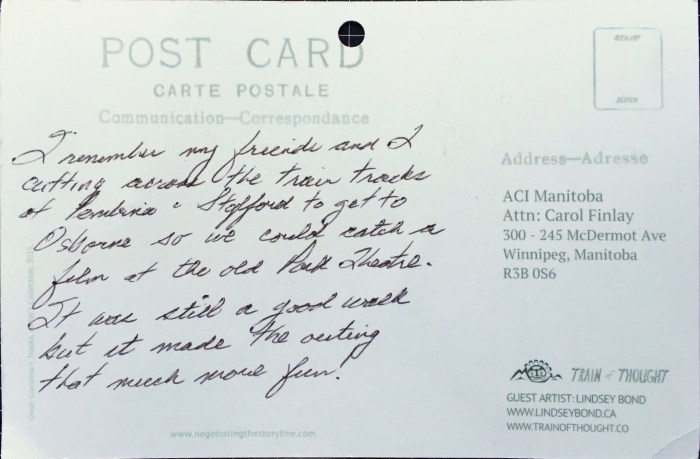 POST CARD
CARTE POSTALE
Communication—Correspondance
I remember my friends and I
cutting across the train tracks
at Pembina & Stafford to get to
Osborne so we could catch a
film at the old Park Theatre.
It was still a good walk
but it made the outing
that much more fun!
www.negotiatingthestoryline.com
Address—Adresse
ACI Manitoba
Attn: Carol Finlay
300 - 245 McDermot Ave
Winnipeg, Manitoba
R3B 0S6
TRAIN of THOUGHT
GUEST ARTIST: LINDSEY BOND
WWW.LINDSEYBOND.CA
WWW.TRAINOFTHOUGHT.CO